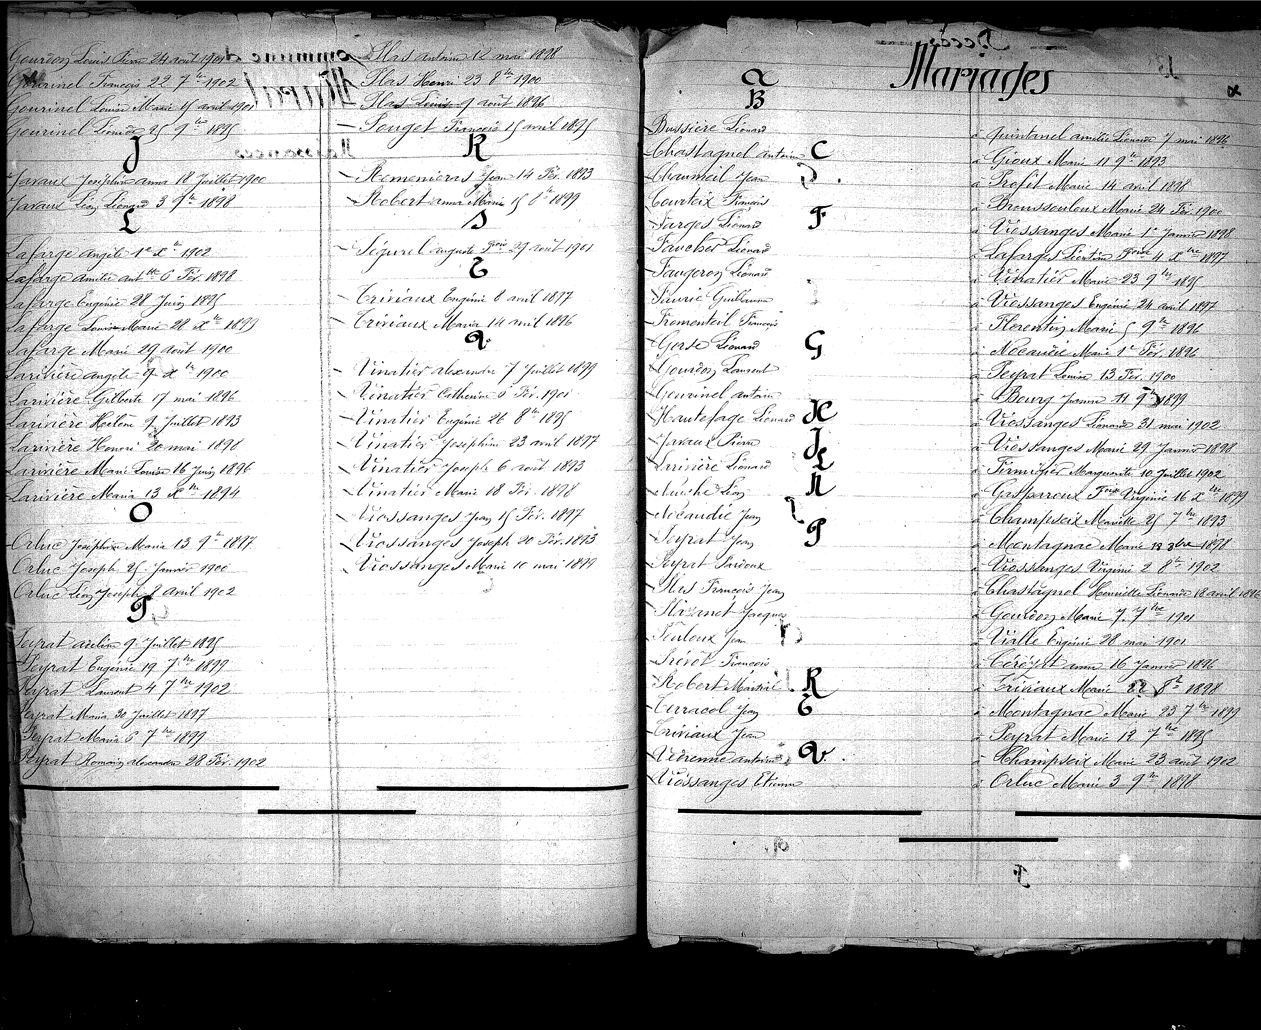 Gourdon Louis Pierre 24 août 1901
Gourinel François 22 7bre 1902
Gourinel Louise Marie 15 avril 1901
Gourinel Léonard 25 9bre 1895
J
Javaux Joséphine anna 18 Juillet 1900
Javaux Léon Léonard 3 9bre 1898
L
Lafarge angèle 1er Xbre 1902
Lafarge amélie antte 6 Fév. 1898
Lafarge Eugénie 28 Juin 1895
Lafarge Louise Marie 28 Xbre 1899
Lafarge Marie 29 août 1900
Larivière angèle 9 Xbre 1900
Larivière Gilberte 17 mai 1896
Larivière Hélène 9 Juillet 1893
Larivière Honoré 20 mai 1898
Larivière Marie Louise 16 Juin 1896
Larivière Maria 13 Xbre 1894
O
Orluc Joséphine Maria 13 9bre 1897
Orluc Joseph 25 Janvier 1900
Orluc Léon Joseph 8 avril 1902
P
Peyrat adeline 9 Juillet 1895
Peyrat Eugénie 19 7bre 1899
Peyrat Laurent 4 7bre 1902
Peyrat Maria 30 Juillet 1897
Peyrat Maria 6 7bre 1899
Peyrat Romain alexandre 28 Fév. 1902
Plas antoine 12 mai 1898
Plas Henri 23 8bre 1900
Plas Louis 9 août 1896
Pouget François 15 avril 1895
R
Remenieras Jean 14 Fév. 1893
Robert anna Marie 15 8bre 1899
S
Ségurel auguste Fçois 29 août 1901
T
Triviaux Eugénie 8 avril 1897
Triviaux Maria 14 avril 1896
V
Vinatier alexandre 7 Juillet 1899
Vinatier Catherine 6 Fév. 1901
Vinatier Eugénie 26 8bre 1895
Vinatier Joséphine 23 avril 1897
Vinatier Joseph 6 août 1893
Vinatier Marie 18 Fév. 1898
Viossanges Jean 15 Fév. 1897
Viossanges Joseph 20 Fév. 1893
Viossanges Marie 10 mai 1899
Mariages
B
Bussière Léonard à Quintanel amélie Léonarde 7 mai 1896
C
Chastagnol antoine à Gioux Marie 11 9bre 1893
Chaumeil Jean à Profit Marie 14 avril 1898
Courteix François à Broussouloux Marie 24 Fév. 1900
F
Farges Léonard à Viossanges Marie 1er Janvier 1898
Faucher Léonard à Lafarges Léontine Fçoise 4 Xbre 1897
Faugeron Léonard à Vinatier Marie 23 9bre 1895
Faurie Guillaume à Viossanges Eugénie 24 avril 1897
Fromenteil François à Florentin Marie 5 9bre 1896
G
Gorse Léonard à Nocaudie Marie 1er Fév. 1896
Gourdon Laurent à Peyrat Louise 13 Fév. 1900
Gourinel antoine à Bourg Jeanne 11 9bre 1899
H
Hautefage Léonard à Viossanges Léonarde 31 mai 1902
J
Javaux Pierre à Viossanges Marie 29 Janvier 1898
L
Larivière Léonard à Firmigier Marguerite 10 Juillet 1902
N
Niuche Léon à Gasparoux Fçoise Virginie 16 Xbre 1899
Nocaudie Jean à Champseix Mariette 25 7bre 1893
P
Peyrat Jean à Montagnac Marie 12 3bre 1898
Peyrat à Viossanges Virginie 2 8bre 1902
Plas François Jean à Chastagnol Henriette Léonarde 18 avril 1896
Jacques à Gourdon Marie 7 7bre 1901
Pouloux Jean à Vialle Eugénie 28 mai 1901
François à anna 16 Janvier 1896
R
Robert Martial à Triviaux Marie 22 8bre 1898
T
Terracol Jean à Montagnac Marie 23 7bre 1899
Triviaux Jean à Peyrat Marie 12 7bre 1895
V
Védrenne antoine à Champseix Marie 23 août 1902
Viossanges Etienne à Orluc Marie 3 9bre 1898